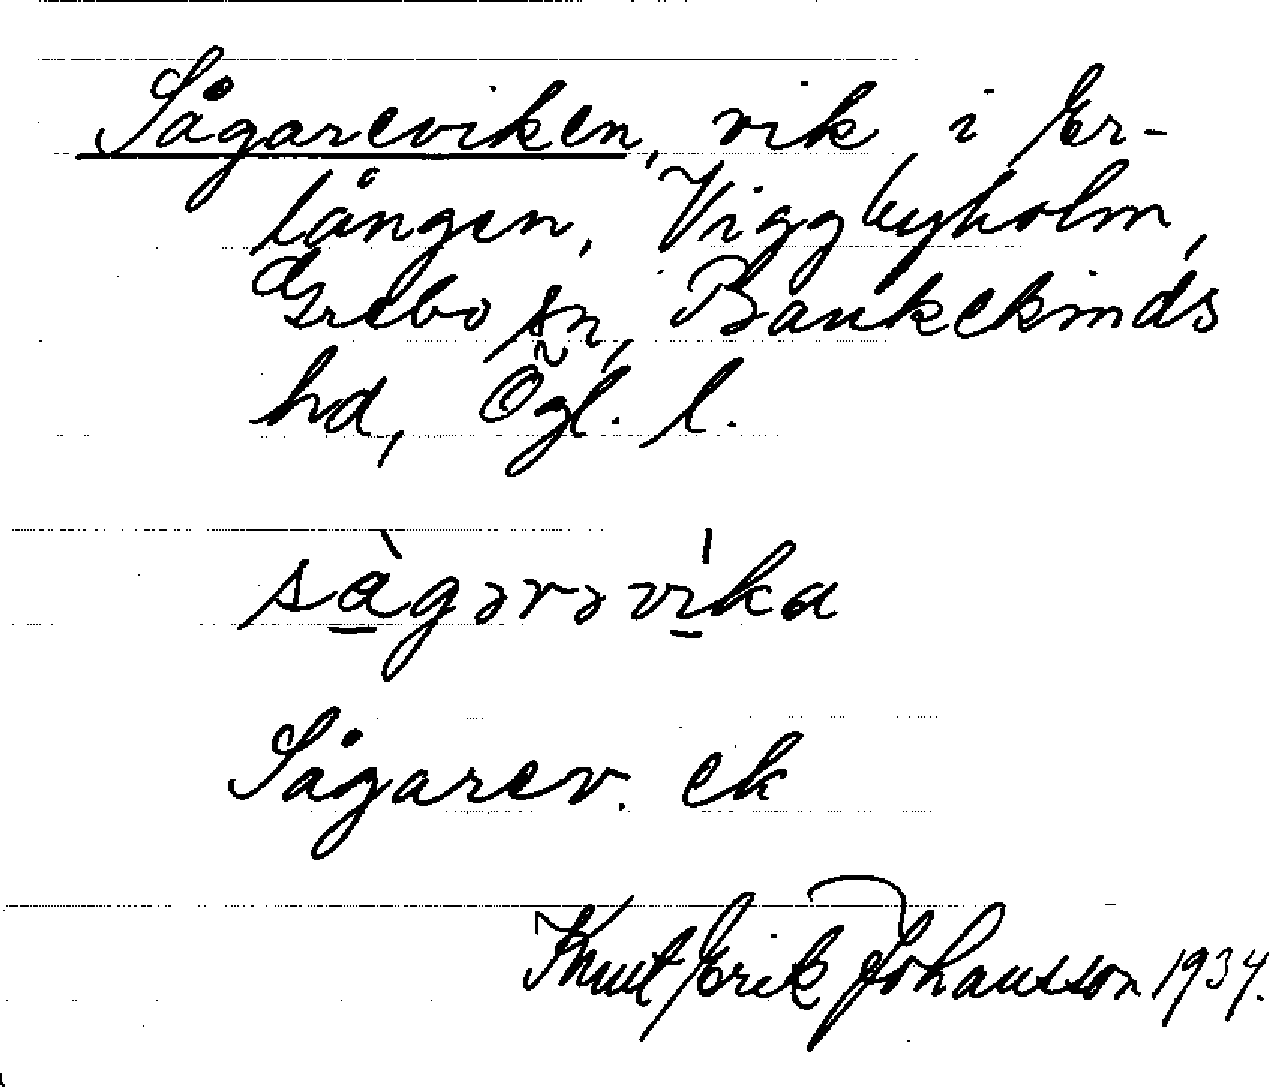 Sågareviken, vik i Er-
lången, Viggbyholm,
Grebo sn, Bankekinds
hd, Ögl. l.
sàgərəvi̍ka
Sågarev. ek
Knut Erik Johansson 1934.